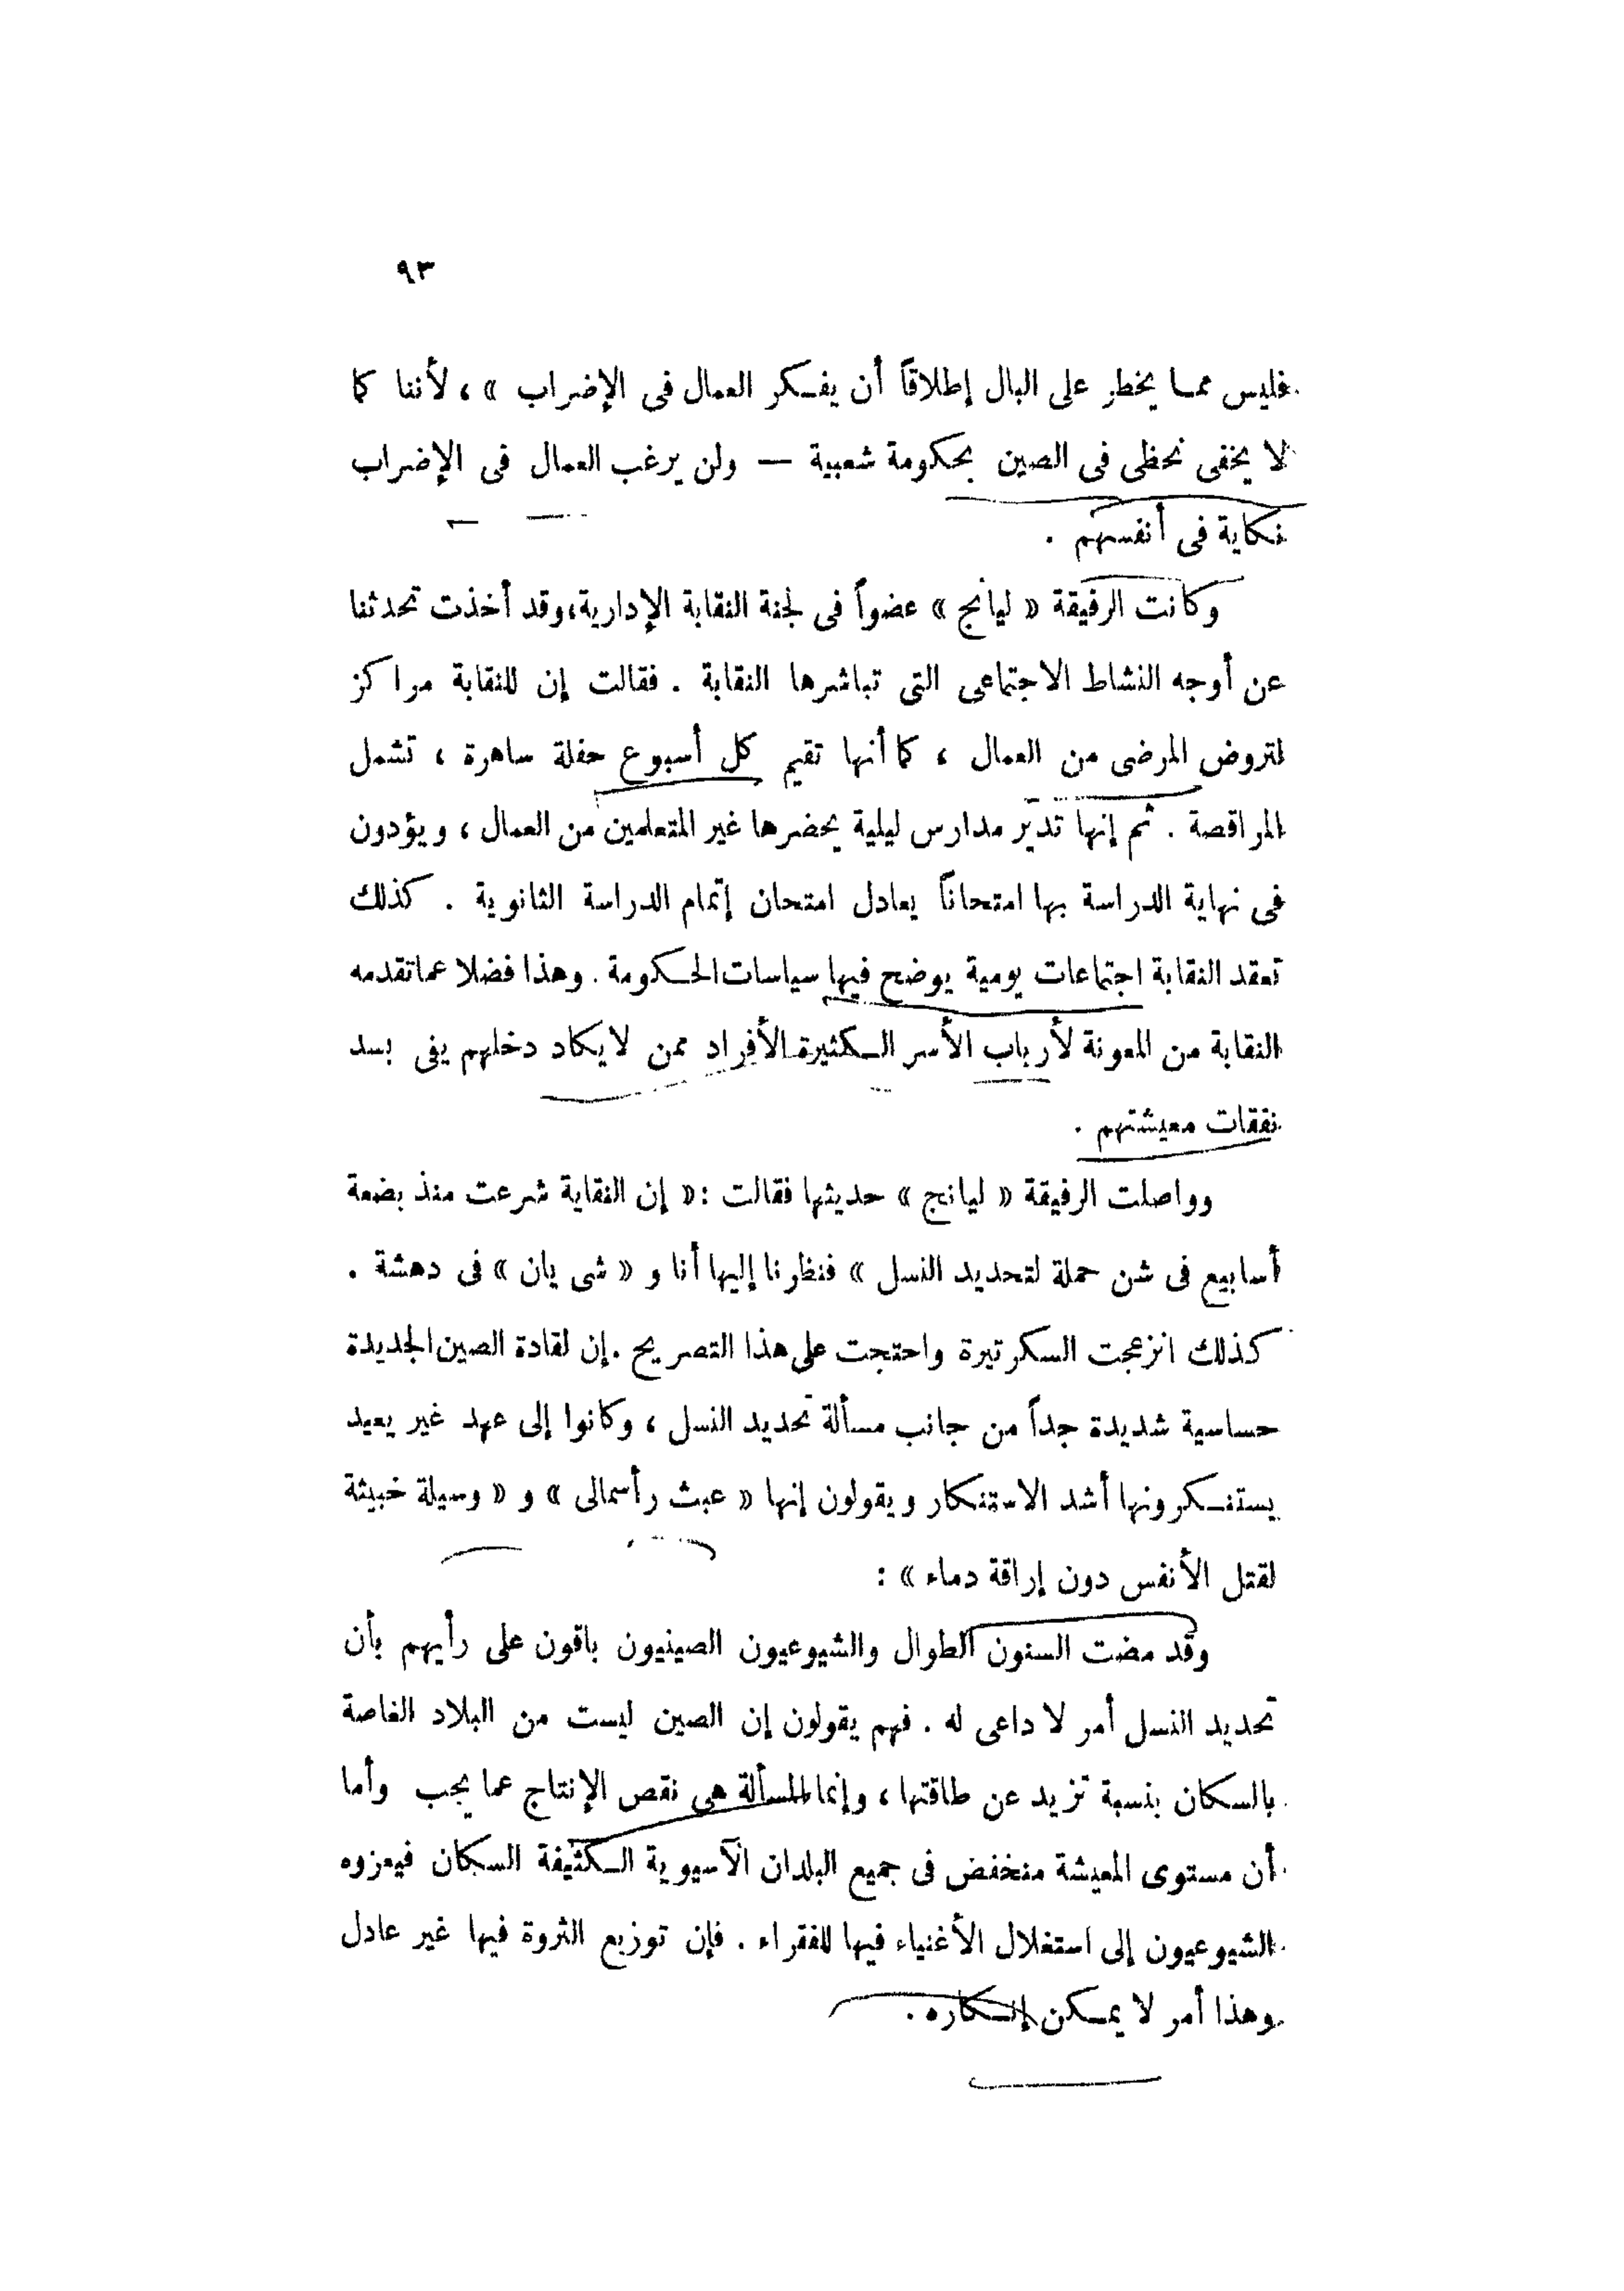 ٩٣
فليس مما يخطر على البال إطلاقاً أن يفكر العمال فى الإضراب » ، لأننا كما
لا يخفى نحظى فى الصين بحكومة شعبية — ولن يرغب العمال فى الإضراب
نكاية فى أنفسهم .
وكانت الرفيقة « ليانج » عضواً فى لجنة النقابة الإدارية، وقد أخذت تحدثنا
عن أوجه النشاط الاجتماعى التى تباشرها النقابة . فقالت إن للنقابة مراكز
لتروض المرضى من العمال ، كما أنها تقيم كل أسبوع حفلة ساهرة ، تشمل
المراقصة . ثم إنها تدير مدارس ليلية يحضرها غير المتعلمين من العمال ، ويؤدون
فى نهاية الدراسة بها امتحاناً يعادل امتحان إتمام الدراسة الثانوية . كذلك
تعقد النقابة اجتماعات يومية يوضح فيها سياسات الحكومة . وهذا فضلا عما تقدمه
النقابة من المعونة لأرباب الأسر الكثيرة الأفراد ممن لا يكاد دخلهم يفى بسد
نفقات معيشتهم .
وواصلت الرفيقة « ليانج » حديثها فقالت : « إن النقابة شرعت منذ بضعة
أسابيع فى شن حملة لتحديد النسل » فنظرنا إليها أنا و « شى يان » فى دهشة .
كذلك انزعجت السكرتيرة واحتجت على هذا التصريح . إن لقادة الصين الجديدة
حساسية شديدة جداً من جانب مسألة تحديد النسل ، وكانوا إلى عهد غير بعيد
يستنكرونها أشد الاستنكار ويقولون إنها « عبث رأسمالى » و « وسيلة خبيثة
لقتل الأنفس دون إراقة دماء » :
وقد مضت السنون الطوال والشيوعيون الصينيون باقون على رأيهم بأن
تحديد النسل أمر لا داعى له . فهم يقولون إن الصين ليست من البلاد الغاصة
بالسكان بنسبة تزيد عن طاقتها ، وإنما المسألة هى نقص الإنتاج عما يجب وأما
أن مستوى المعيشة منخفض فى جميع البلدان الآسيوية الكثيفة السكان فيعزوه
الشيوعيون إلى استغلال الأغنياء فيها للفقراء . فإن توزيع الثروة فيها غير عادل
وهذا أمر لا يمكن إنكاره .